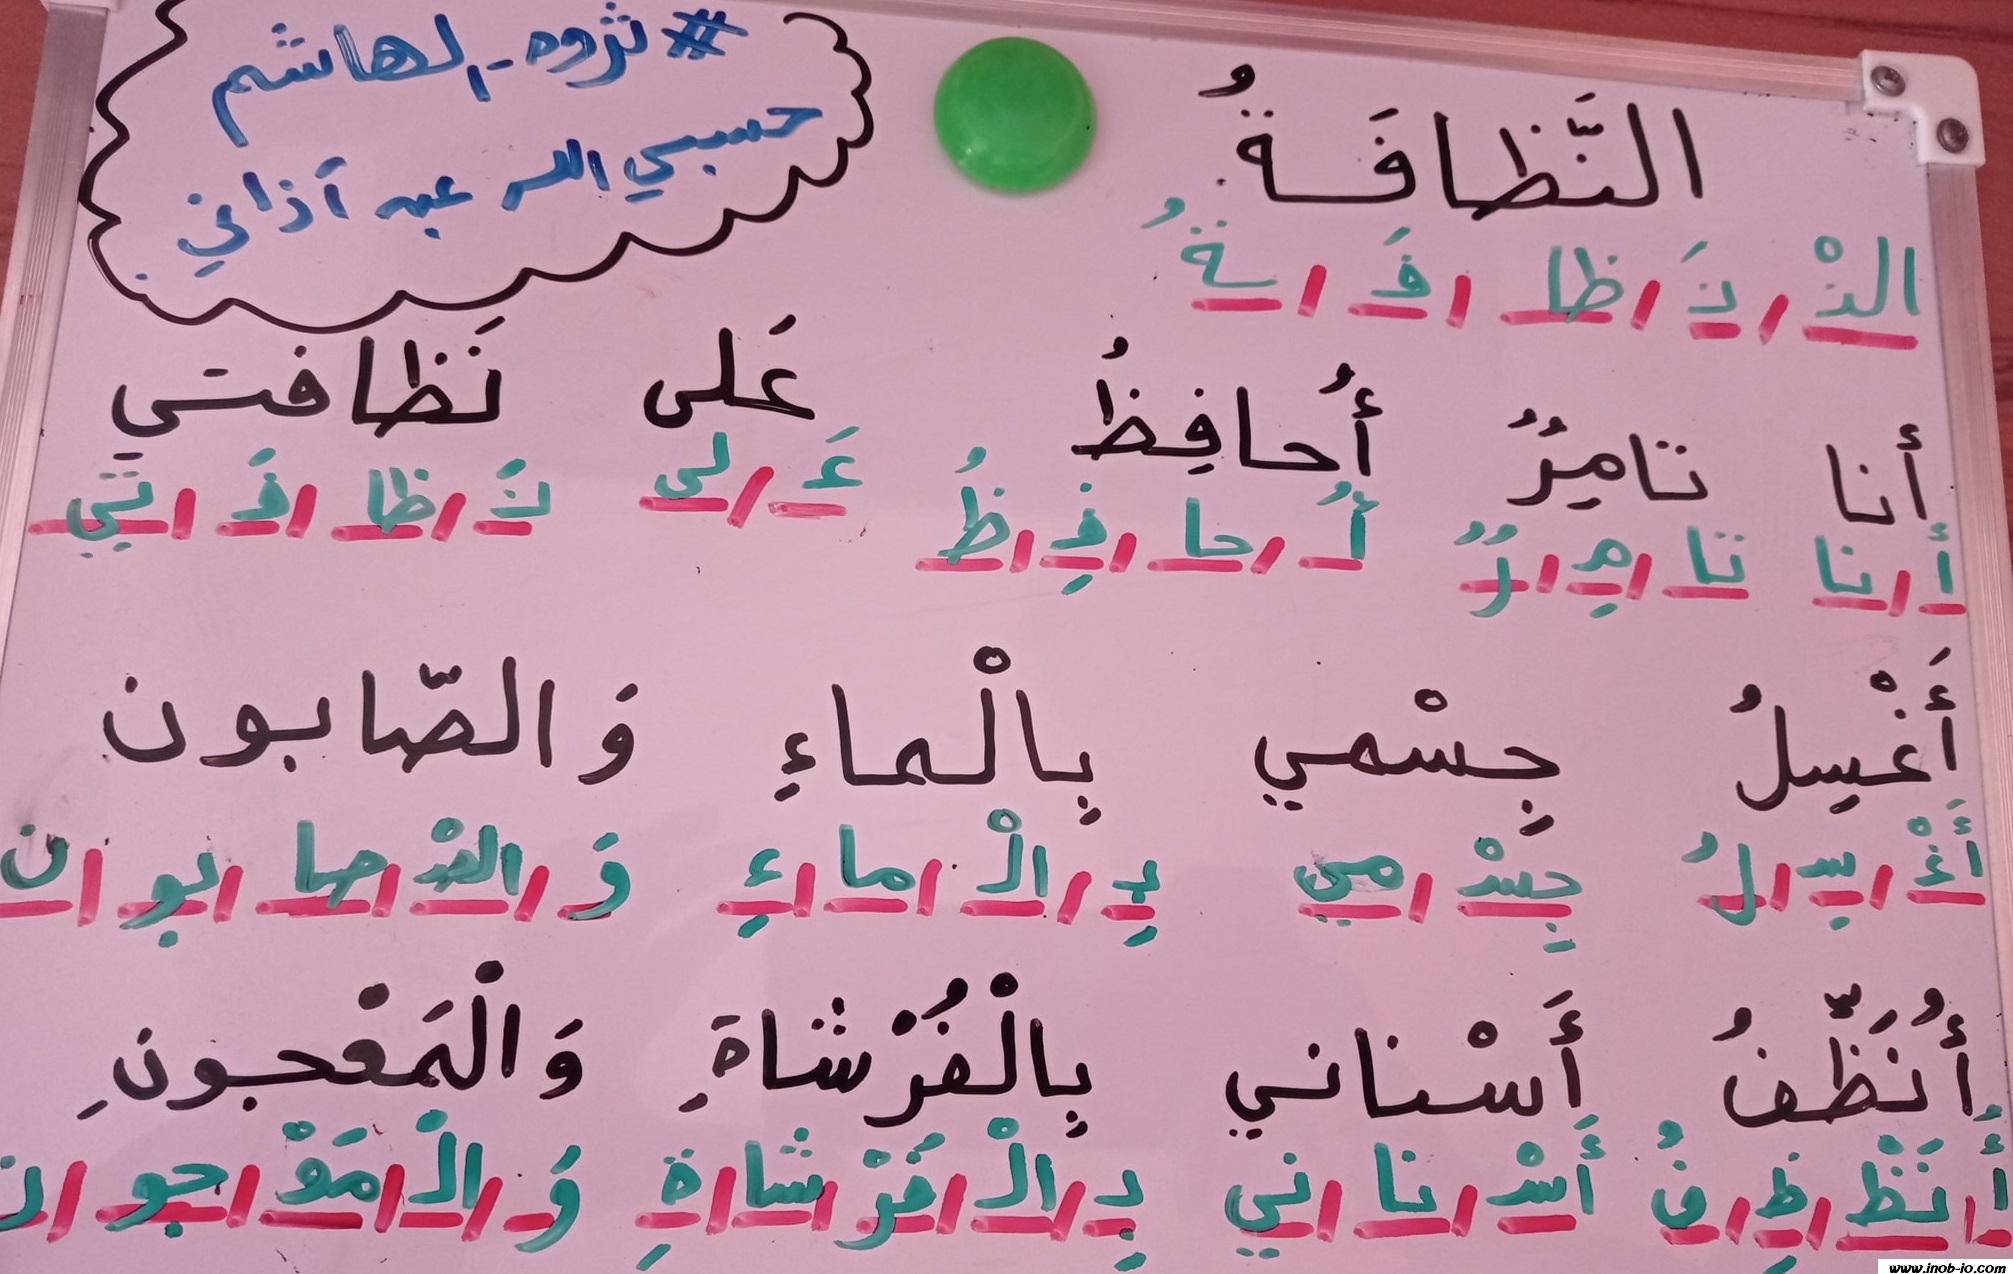 #ثروه_الهاشم
حسبي الله عبد آذاني
النَّظافَةُ
النْ / نَ / ظا / فَ / ةُ
أنا تامِرٌ أُحافِظُ عَلى نَظافتي
أَ / نا تا / مِ / رٌ أُ / حا / فِ / ظُ عَ / لى نَ / ظا / فَ / تي
أَغْسِلُ جِسْمي بِالْماءِ وَ الصّابون
أَغْ / سِ / لُ جِسْ / مي بِ / الْ / ما / ءِ وَ / الصْ / صا / بو / ن
أُنَظِّفُ أَسْناني بِالْفُرْشاةِ وَ الْمَعْجونِ
أُ / نَظْ / ظِ / فُ أَسْ / نا / ني بِ / الْ / فُرْ / شا / ةِ وَ / الْ / مَعْ / جو / ن
www.inob-io.com